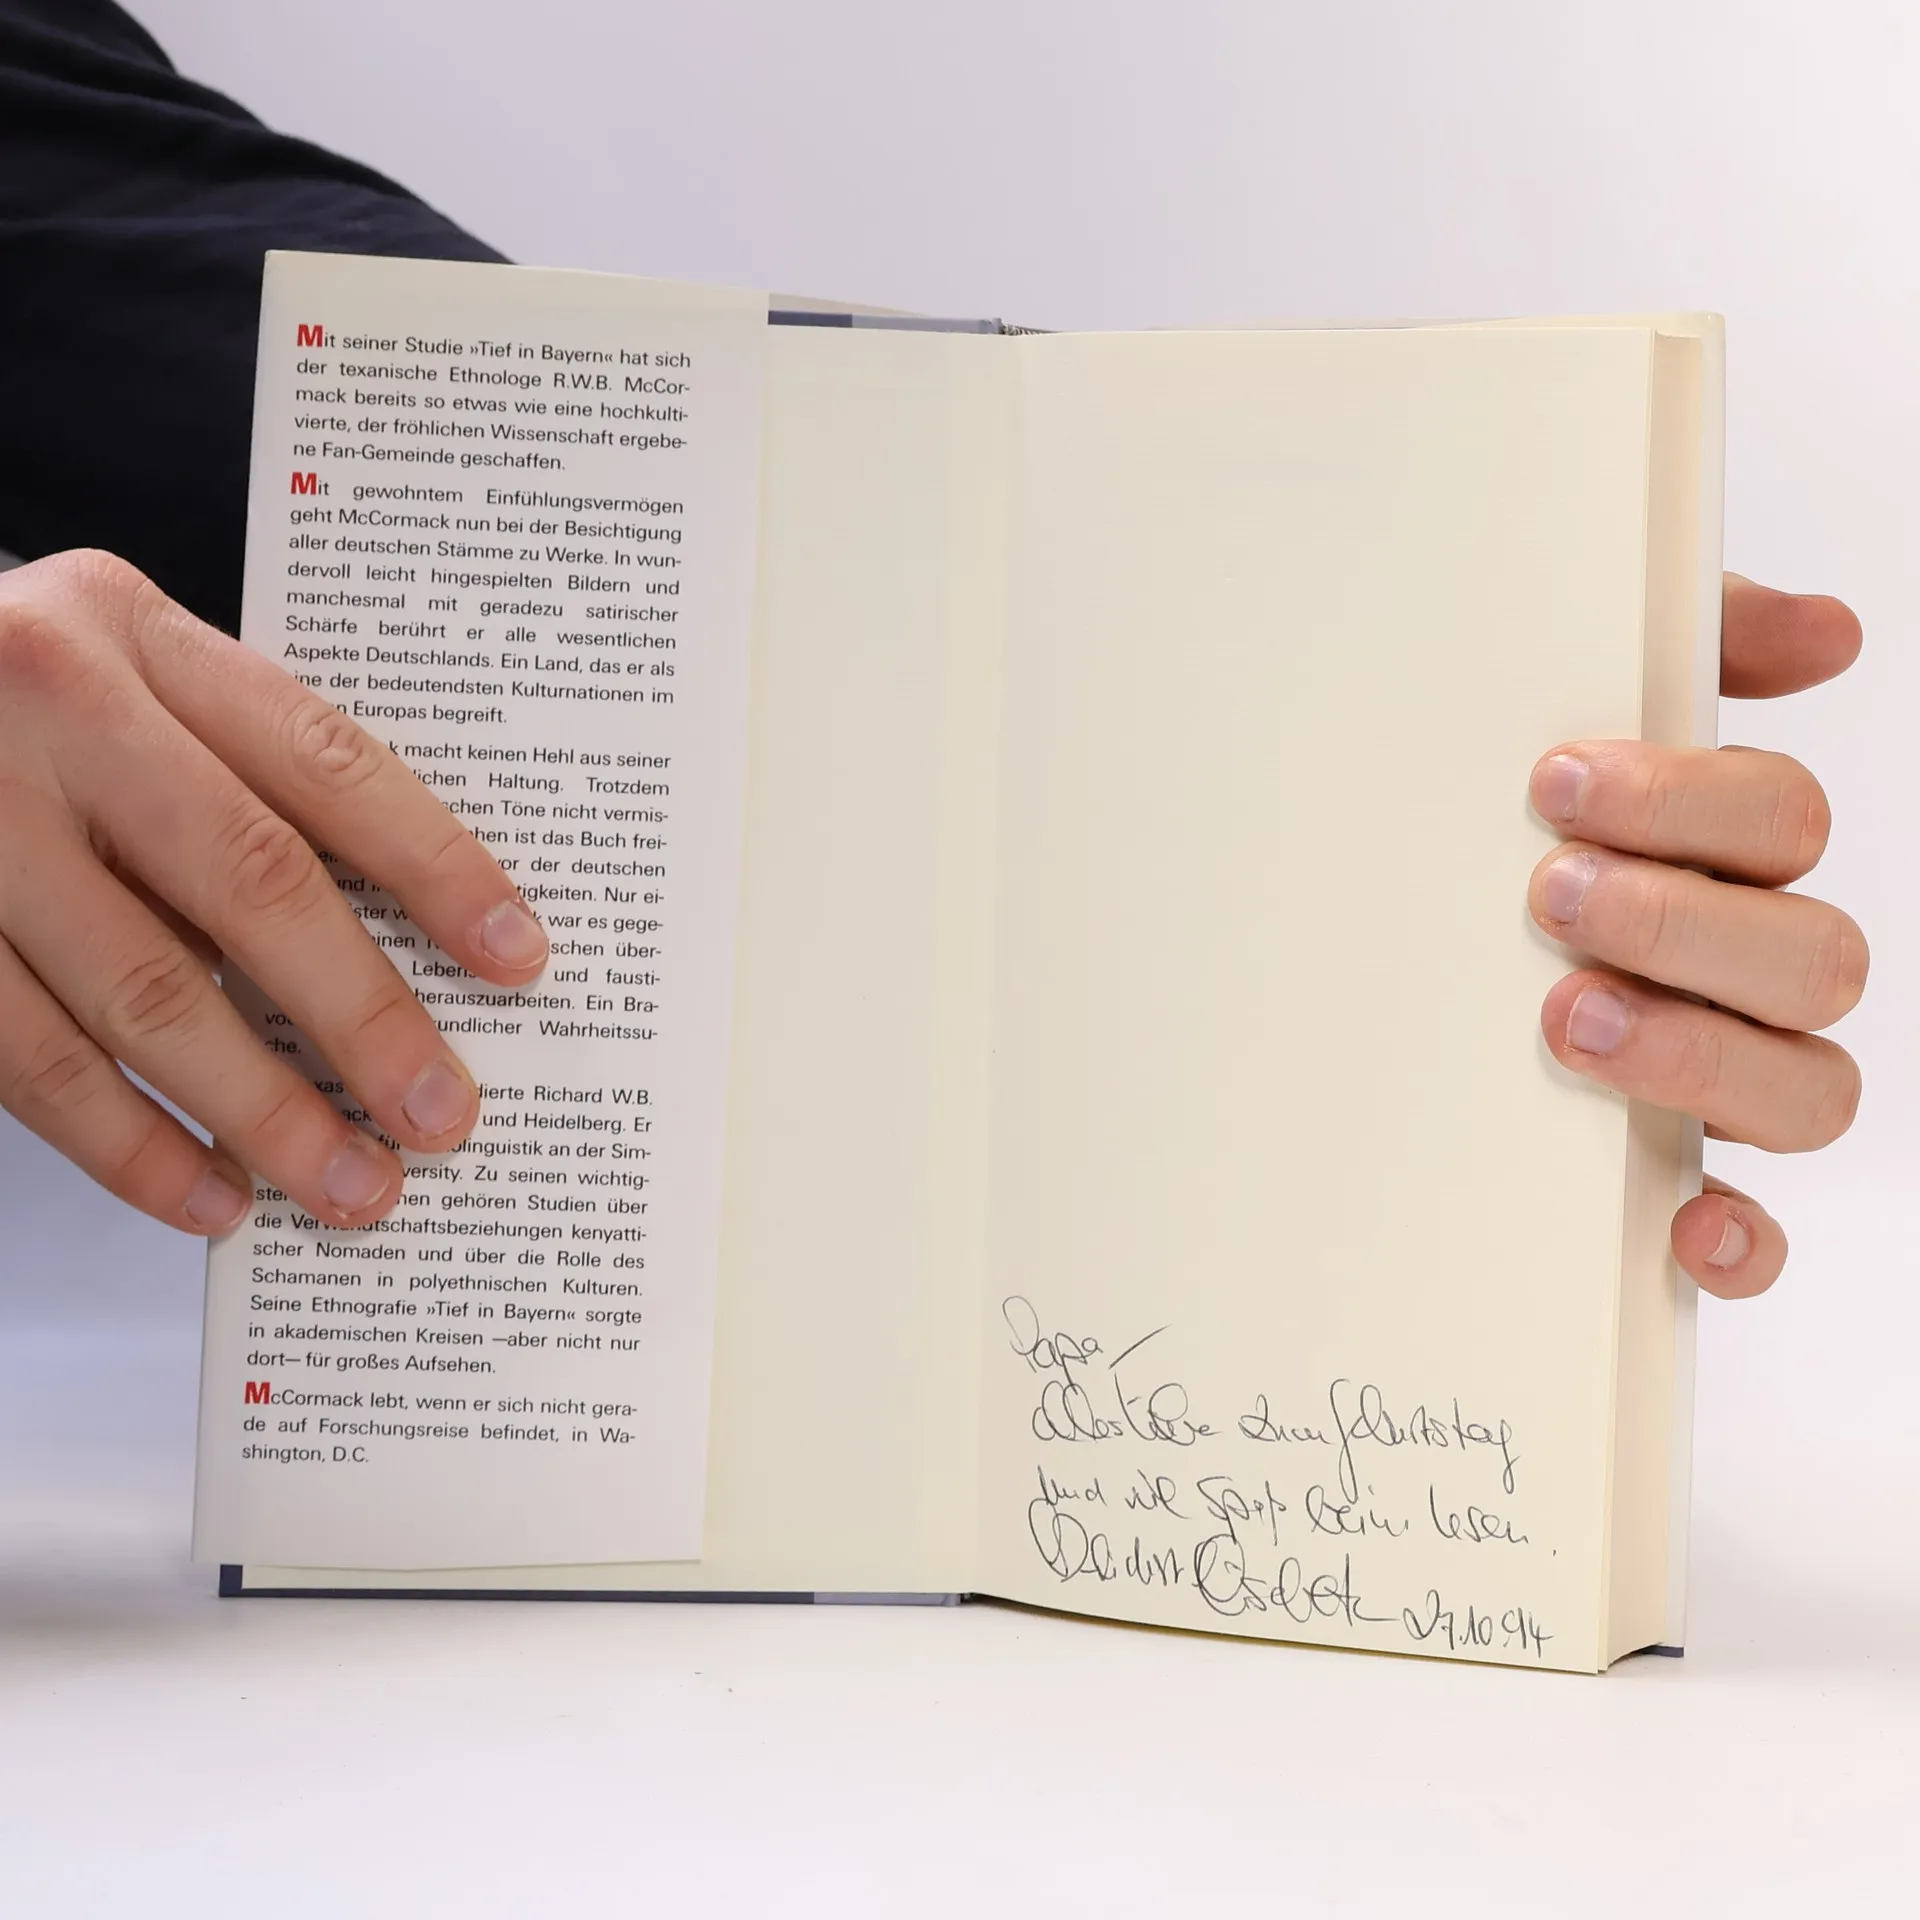 Mit seiner Studie »Tief in Bayern« hat sich
der texanische Ethnologe R.W.B. McCor-
mack bereits so etwas wie eine hochkulti-
vierte, der fröhlichen Wissenschaft ergebe-
ne Fan-Gemeinde geschaffen.
Mit gewohntem Einfühlungsvermögen
geht McCormack nun bei der Besichtigung
aller deutschen Stämme zu Werke. In wun-
dervoll leicht hingespielten Bildern und
manchesmal mit geradezu satirischer
Schärfe berührt er alle wesentlichen
Aspekte Deutschlands. Ein Land, das er als
ine der bedeutendsten Kulturnationen im
Europas begreift.
macht keinen Hehl aus seiner
lichen Haltung. Trotzdem
schen Töne nicht vermis-
hen ist das Buch frei-
vor der deutschen
und tigkeiten. Nur ei-
ster war es gege-
einen schen über-
Lebens und fausti-
herauszuarbeiten. Ein Bra-
undlicher Wahrheitssu-
che.
xas dierte Richard W.B.
ack und Heidelberg. Er
für olinguistik an der Sim-
versity. Zu seinen wichtig-
sten nen gehören Studien über
die Verwandtschaftsbeziehungen kenyatti-
scher Nomaden und über die Rolle des
Schamanen in polyethnischen Kulturen.
Seine Ethnografie »Tief in Bayern« sorgte
in akademischen Kreisen —aber nicht nur
dort— für großes Aufsehen.
McCormack lebt, wenn er sich nicht gera-
de auf Forschungsreise befindet, in Wa-
shington, D.C.
Papa —
Alles Liebe zum Geburtstag
und viel Spaß beim lesen.
27.10.94